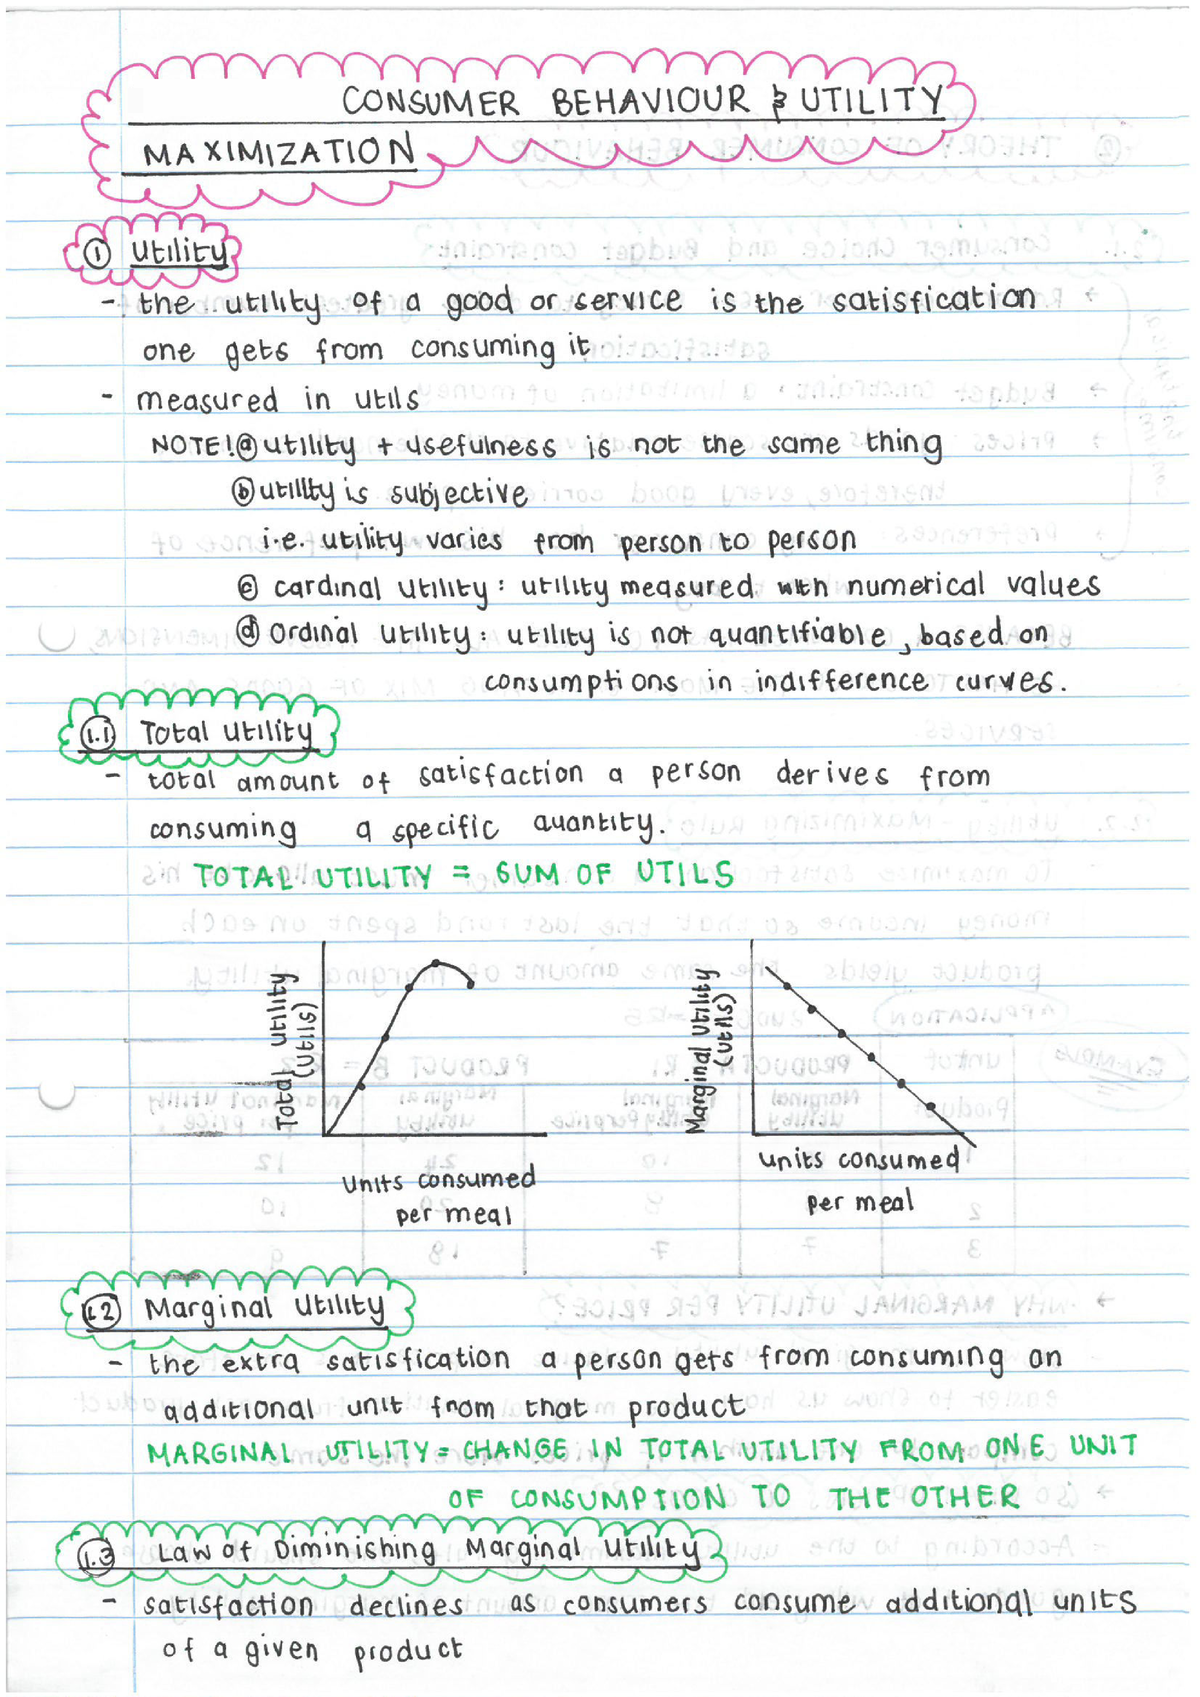 CONSUMER BEHAVIOUR & UTILITY
MAXIMIZATION
① Utility
- the utility of a good or service is the satisfication
one gets from consuming it
- measured in utils
NOTE! ⓐ utility + usefulness is not the same thing
ⓑ utility is subjective
i.e. utility varies from person to person
ⓒ cardinal utility: utility measured with numerical values
ⓓ Ordinal utility: utility is not quantifiable, based on
consumptions in indifference curves.
1.1 Total utility
- total amount of satisfaction a person derives from
consuming a specific quantity.
TOTAL UTILITY = SUM OF UTILS
Total utility
(utils)
units consumed
per meal
Marginal utility
(utils)
units consumed
per meal
1.2 Marginal Utility
- the extra satisfication a person gets from consuming an
additional unit from that product
MARGINAL UTILITY = CHANGE IN TOTAL UTILITY FROM ONE UNIT
OF CONSUMPTION TO THE OTHER
1.3 Law of Diminishing Marginal Utility
- satisfaction declines as consumers consume additional units
of a given product